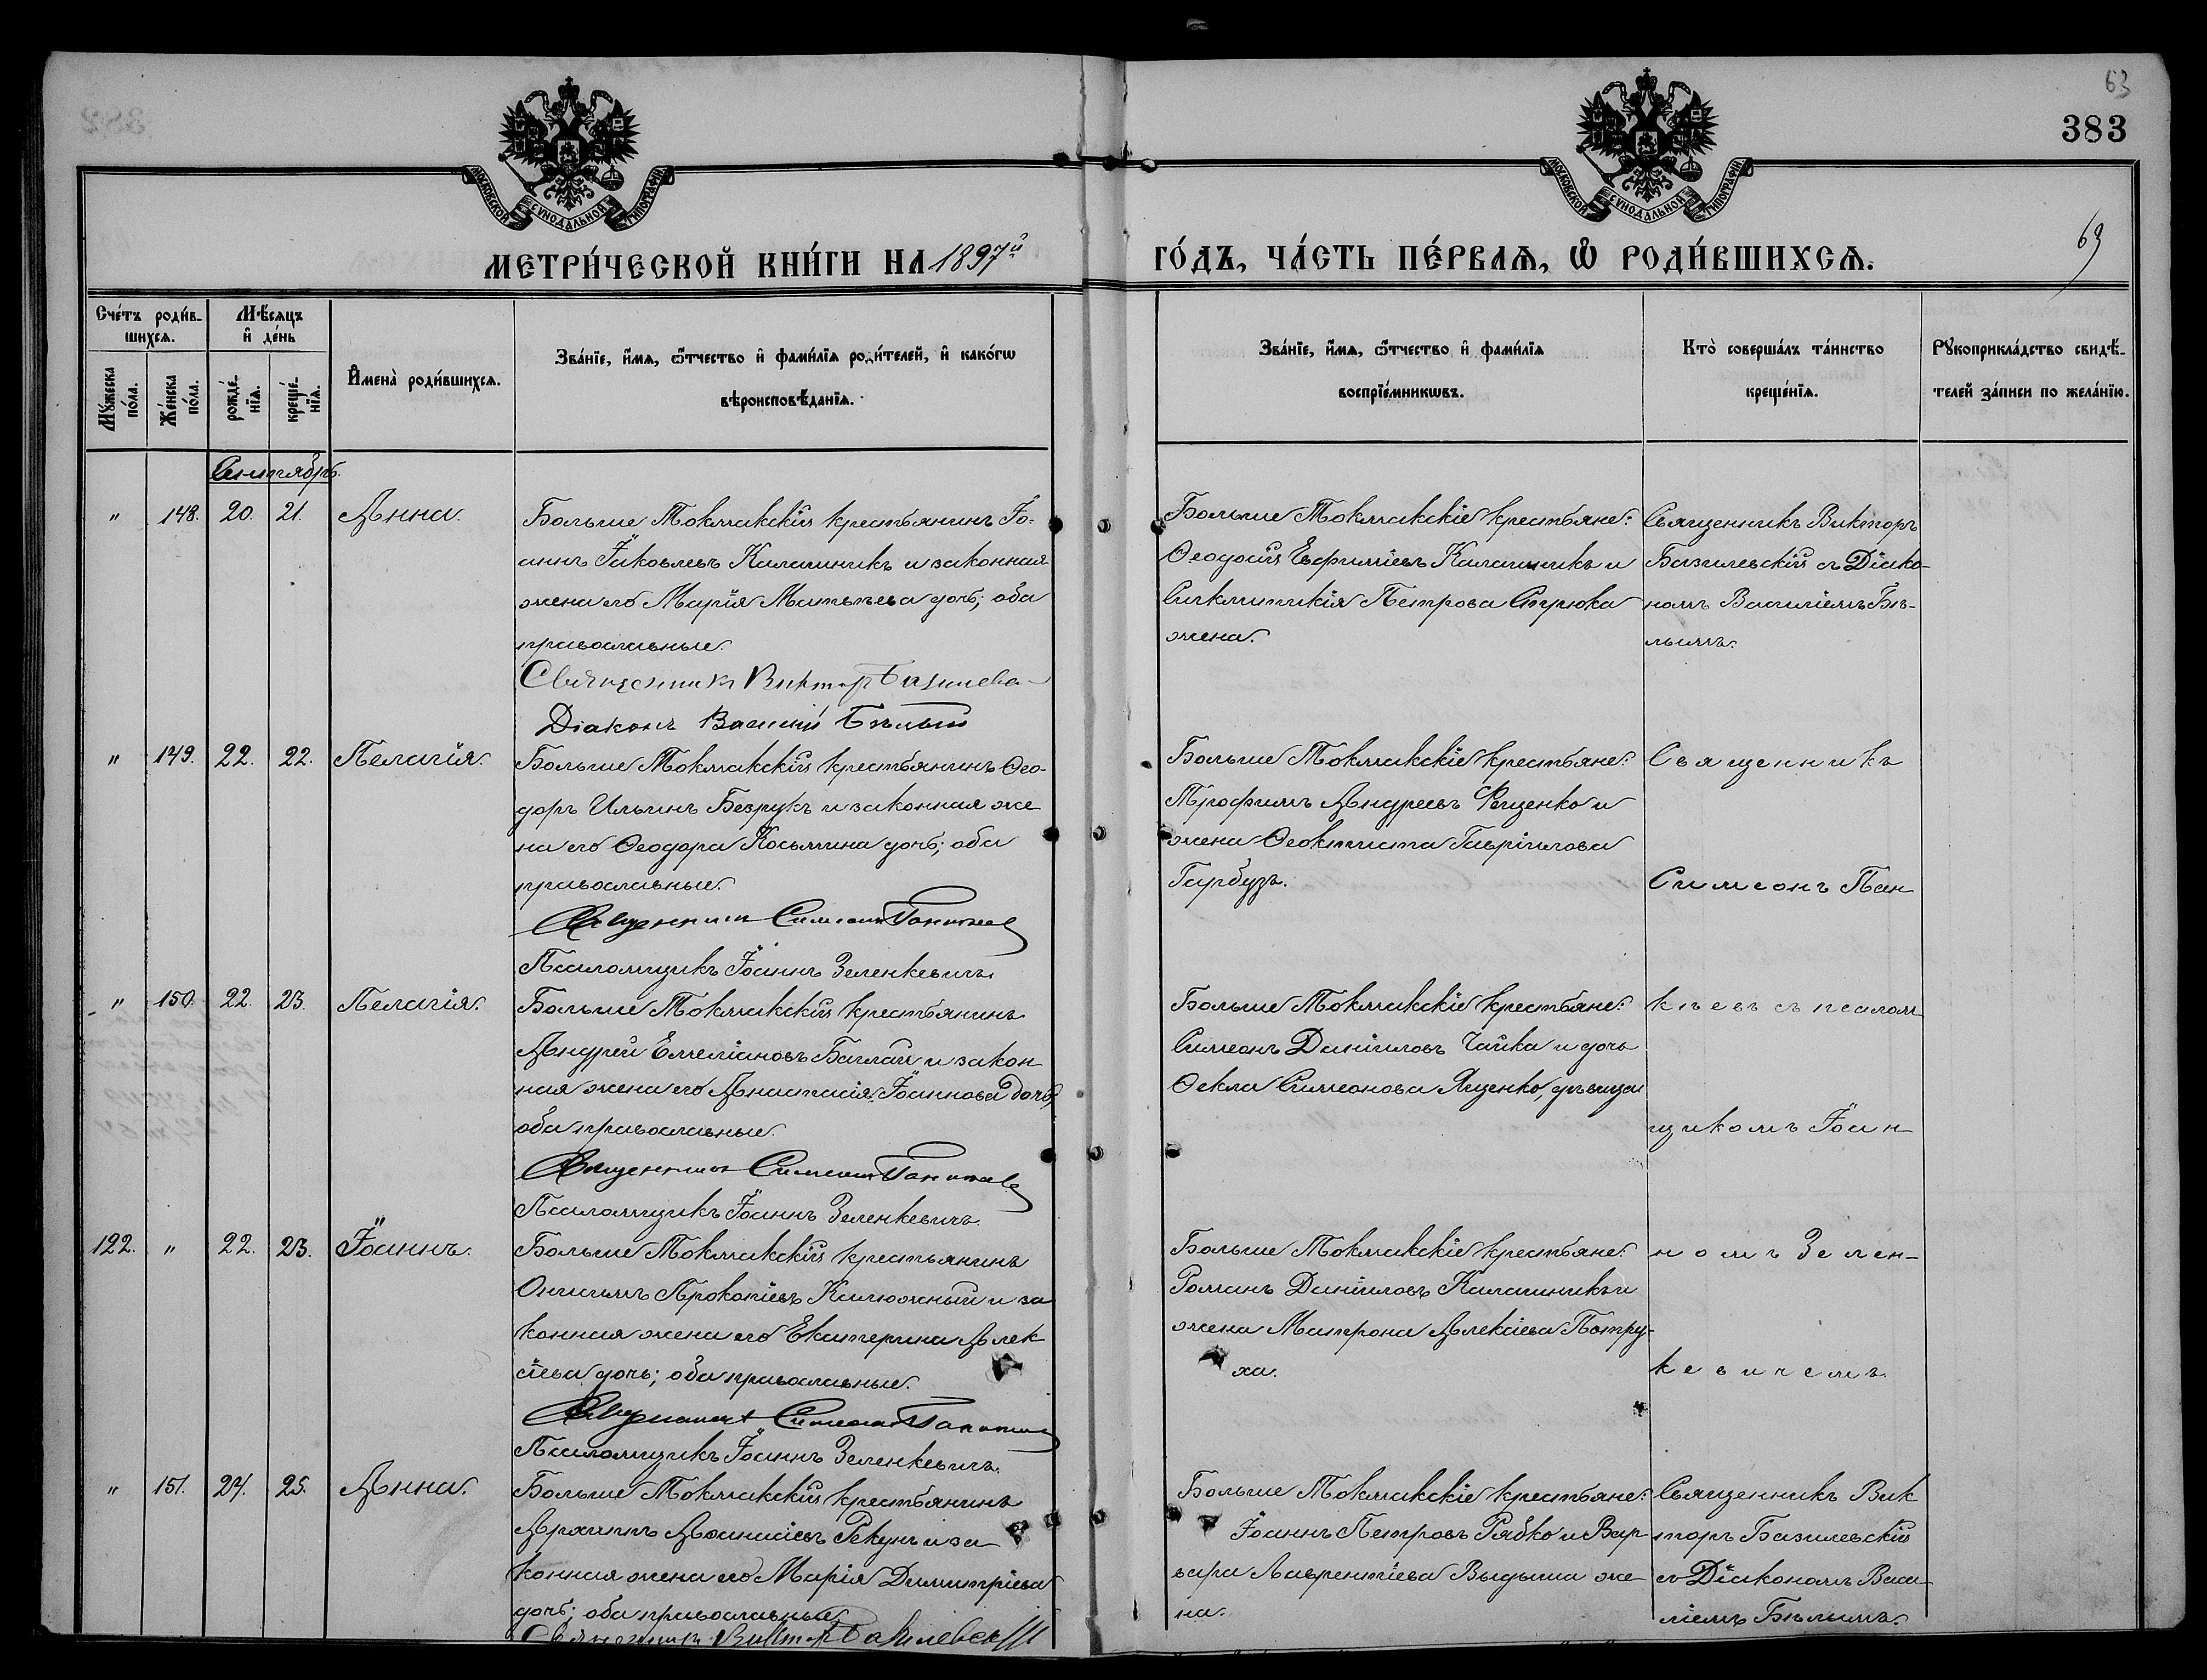 63
383
МОСКОВСКОЙ СѴНОДАЛЬНОЙ ТИПОГРАФІИ
МОСКОВСКОЙ СѴНОДАЛЬНОЙ ТИПОГРАФІИ
МЕТРИ́ЧЕСКОЙ КНИ́ГИ НА 1897й
ГО́ДЪ, ЧА́СТЬ ПЕ́РВАѦ, Ѡ РОДИ́ВШИХСѦ.
69
Сче́тъ роди́в-
шихсѧ.
Мѣ́сѧцъ
и҆ де́нь
Мꙋ́жеска
по́ла.
Же́нска
по́ла.
рожде́-
нїѧ.
креще́-
нїѧ.
И҆мена̀ роди́вшихсѧ.
Зва́нїе, и҆́мѧ, ѻ҆́тчество и҆ фами́лїѧ роди́телей, и҆ како́гѡ
вѣроисповѣ́данїѧ.
Зва́нїе, и҆́мѧ, ѻ҆́тчество и҆ фами́лїѧ
воспрїе́мникѡвъ.
Кто̀ соверша́лъ та́инство
креще́нїѧ.
Рꙋкоприкла́дство свидѣ́-
телей за́писи по жела́нїю.
Сентябрь.
" 148. 20. 21. Анна.
Больше Токмакскій крестьянинъ Іо-
аннъ Іаковлевъ Калашникъ и законная
жена его Марія Матѳеева дочь; оба
православные.
Священникъ Викторъ Базилевс
Діаконъ Василій Бѣлый
Больше Токмакскіе крестьяне:
Ѳеодосій Евфиміевъ Калашникъ и
Синклитикія Петрова Стрюка
жена.
Священникъ Викторъ
Базилевскій съ Діако-
номъ Василіемъ Бѣ-
лымъ.
" 149. 22. 22. Пелагія.
Больше Токмакскій крестьянинъ Ѳео-
доръ Ильинъ Безрукъ и законная же
на его Ѳеодора Косьмина дочь; оба
православные.
Священникъ Симеонъ
Псаломщикъ Іоаннъ Зеленкевичъ
Больше Токмакскіе крестьяне:
Трофимъ Андреевъ Фещенко и
жена Ѳеоктиста Гавріилова
Гарбузъ.
Священникъ
Симеонъ Пан
" 150. 22. 23. Пелагія.
Больше Токмакскій крестьянинъ
Андрей Емеліановъ Баглай и закон
ная жена его Анастасія Іоаннова дочь;
оба православные.
Священникъ Симеонъ
Псаломщикъ Іоаннъ Зеленкевичъ.
Больше Токмакскіе крестьяне:
Симеонъ Даніиловъ Чайка и дочь
Ѳекла Симеонова Яценко, дѣвица
кѣевъ съ псалом
щикомъ Іоан
122. " 22. 23. Іоаннъ.
Больше Токмакскій крестьянинъ
Онисимъ Прокопіевъ Калюжный и за
конная жена его Екатерина Алек
сіева дочь; оба православные.
Священникъ Симеонъ
Псаломщикъ Іоаннъ Зеленкевичъ.
Больше Токмакскіе крестьяне:
Романъ Даніиловъ Калашникъ и
жена Матрона Алексіева Потру-
ха.
номъ Зелен-
кевичемъ.
" 151. 24. 25. Анна.
Больше Токмакскій крестьянинъ
Архиппъ Аѳанасіевъ Рекунъ и за
конная жена его Марія Димитріева
дочь; оба православные
Священникъ Викторъ Базилевскій
Больше Токмакскіе крестьяне:
Іоаннъ Петровъ Рябко и Вар
вара Лаврентіева Выдыша же
на.
Священникъ Вик
торъ Базилевскій
съ Діакономъ Васи-
ліемъ Бѣлымъ.